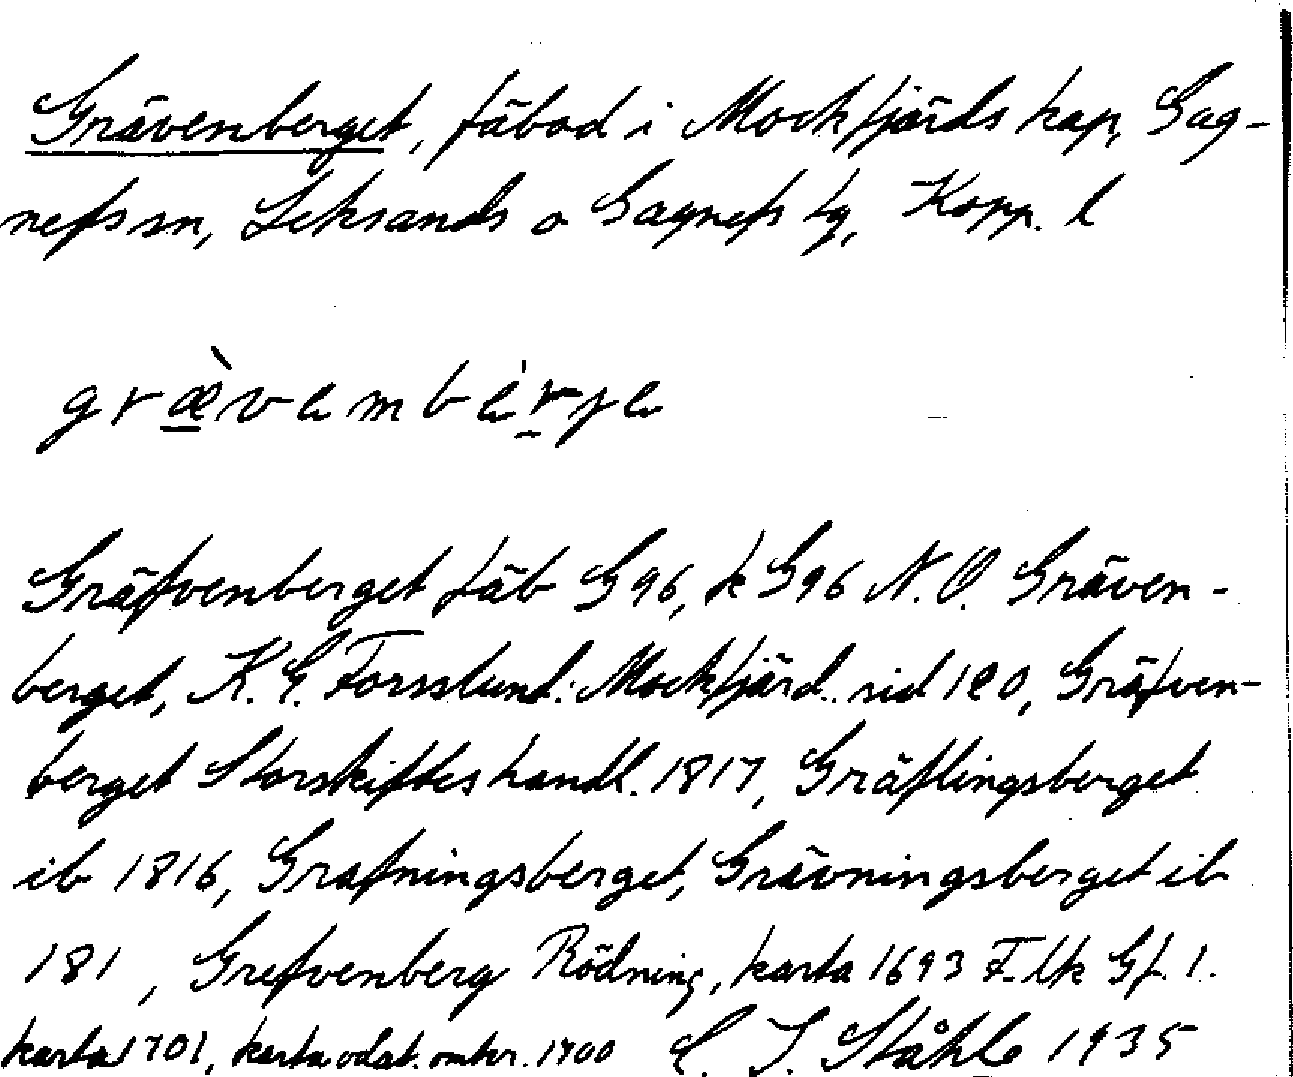 Grävenberget, fäbod i Mockfjärds kap, Gag-
nefs sn, Leksands o Gagnefs tg, Kopp. l
græ̀vembèrje
Gräfvenberget fäb G 96, k G 96 N.O. Gräven-
berget, K. E. Forsslund: Mockfjärd. sid 120, Gräfven-
berget Storskifteshandl. 1817, Gräflingsberget
ib 1816, Grafningsberget, Grävningsberget ib
181 , Grefvenberg Rödning, karta 1693 F.lk Gf. 1.
karta 1701, karta odat. omkr. 1700 E. I. Ståhle 1935